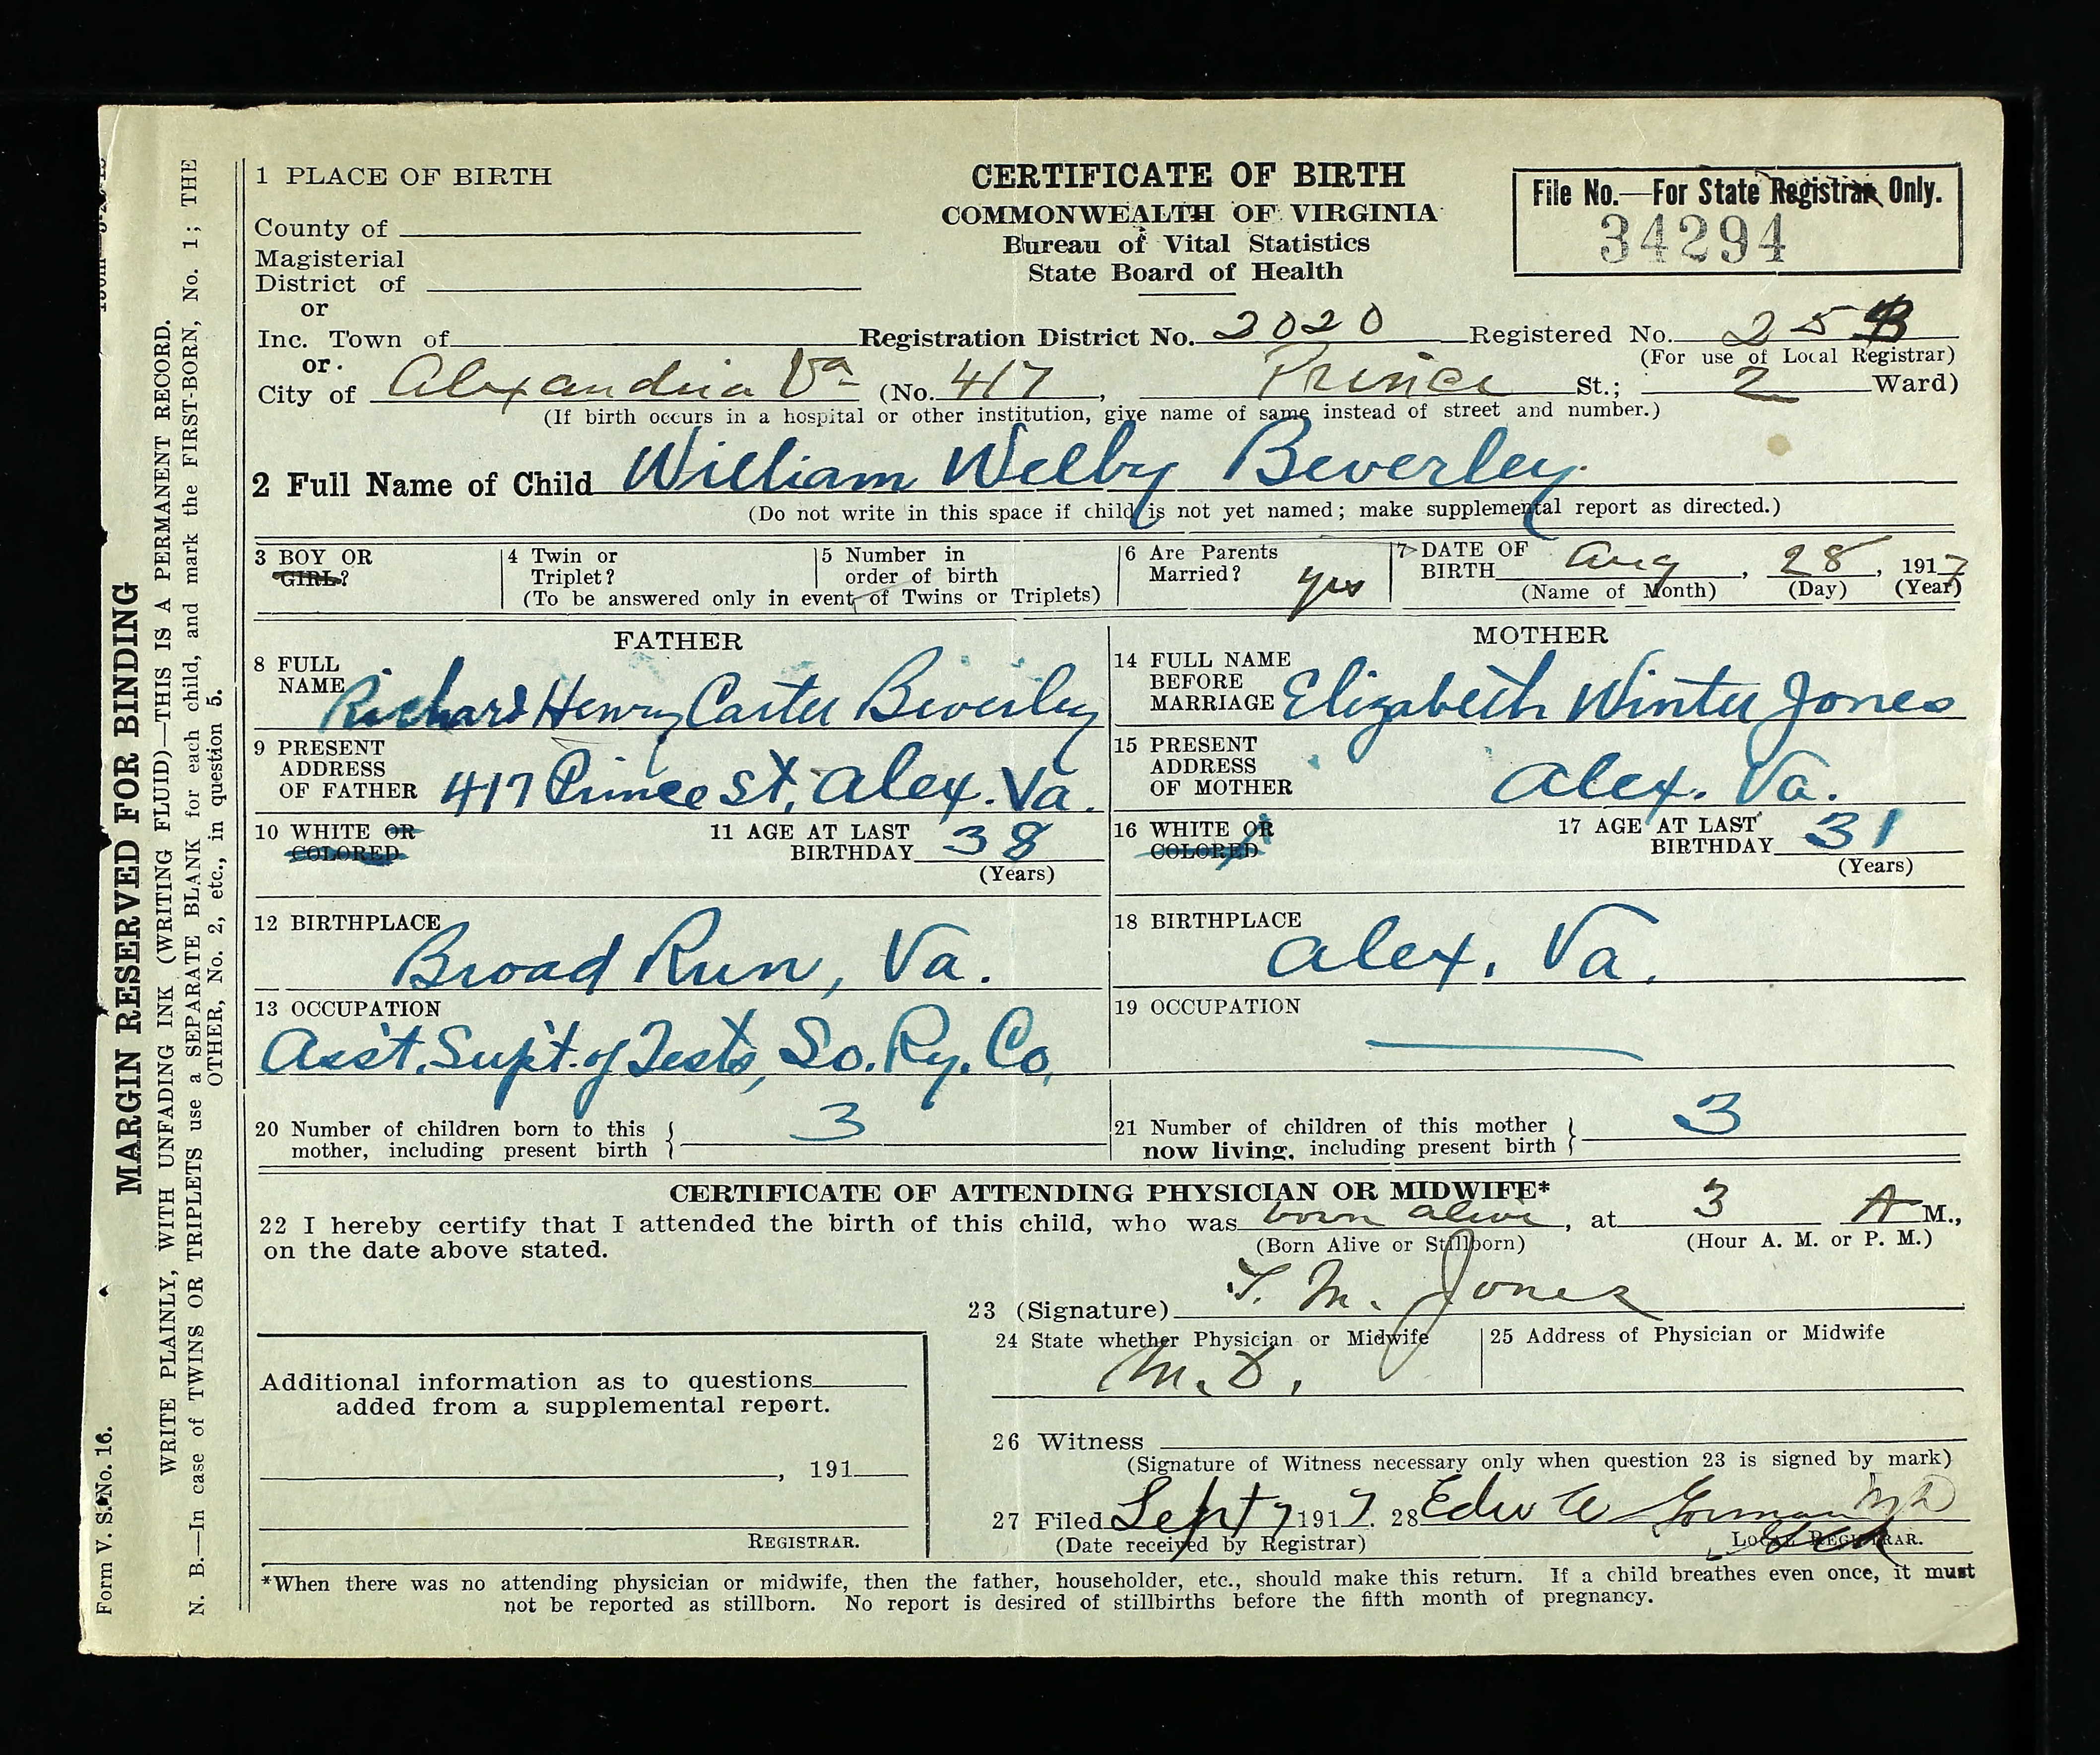 1 PLACE OF BIRTH
CERTIFICATE OF BIRTH
COMMONWEALTH OF VIRGINIA
Bureau of Vital Statistics
State Board of Health
File No.—For State Registrar Only.
34294
County of
Magisterial
District of
or
Inc. Town of
Registration District No. 2020 Registered No. 25
(For use of Local Registrar)
or
City of Alexandria Va (No. 417, Prince St.; 2 Ward)
(If birth occurs in a hospital or other institution, give name of same instead of street and number.)
2 Full Name of Child William Welby Beverley.
(Do not write in this space if child is not yet named; make supplemental report as directed.)
3 BOY OR
GIRL?
4 Twin or
Triplet?
5 Number in
order of birth
(To be answered only in event of Twins or Triplets)
6 Are Parents
Married? yes
7 DATE OF
BIRTH Aug, 28, 1917
(Name of Month) (Day) (Year)
FATHER
8 FULL
NAME Richard Henry Carter Beverley
9 PRESENT
ADDRESS
OF FATHER 417 Prince St, Alex. Va.
10 WHITE OR
COLORED
11 AGE AT LAST
BIRTHDAY 38
(Years)
12 BIRTHPLACE
Broad Run, Va.
13 OCCUPATION
Ass't. Sup't. of Tests, So. Ry. Co,
MOTHER
14 FULL NAME
BEFORE
MARRIAGE Elizabeth Winter Jones
15 PRESENT
ADDRESS
OF MOTHER Alex. Va.
16 WHITE OR
COLORED
17 AGE AT LAST
BIRTHDAY 31
(Years)
18 BIRTHPLACE
Alex. Va.
19 OCCUPATION
20 Number of children born to this
mother, including present birth } 3
21 Number of children of this mother
now living, including present birth } 3
CERTIFICATE OF ATTENDING PHYSICIAN OR MIDWIFE*
22 I hereby certify that I attended the birth of this child, who was born alive, at 3 A M.,
on the date above stated. (Born Alive or Stillborn) (Hour A. M. or P. M.)
23 (Signature) T. M. Jones
24 State whether Physician or Midwife
M. D.
25 Address of Physician or Midwife
Additional information as to questions
added from a supplemental report.
, 191
REGISTRAR.
26 Witness
(Signature of Witness necessary only when question 23 is signed by mark)
27 Filed Sept 7 1917. 28 Edw A Gorman MD
(Date received by Registrar) LOCAL REGISTRAR.
*When there was no attending physician or midwife, then the father, householder, etc., should make this return. If a child breathes even once, it must
not be reported as stillborn. No report is desired of stillbirths before the fifth month of pregnancy.
Form V. S. No. 16.
MARGIN RESERVED FOR BINDING
WRITE PLAINLY, WITH UNFADING INK (WRITING FLUID)—THIS IS A PERMANENT RECORD.
N. B.—In case of TWINS OR TRIPLETS use a SEPARATE BLANK for each child, and mark the FIRST-BORN, No. 1; THE
OTHER, No. 2, etc., in question 5.